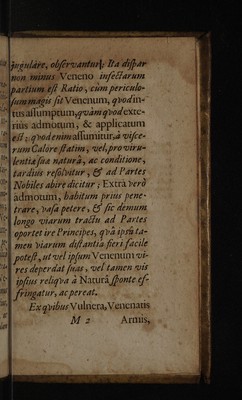 jngulare, observantur]: Ita dispar
non minus Veneno infectarum
partium est Ratio, cum periculo-
sum magis sit Venenum, qvod in-
tus assumptum, qvàm qvod exte-
rius admotum, & applicatum
est: qvod enim assumitur, à visce-
rum Calore statim, vel, pro viru-
lentia sua naturâ, ac conditione,
tardius resolvitur, & ad Partes
Nobiles abire dicitur; Extra verò
admotum, habitum prius pene-
trare, vasa petere, & sic demum
longo viarum tractu ad Partes
oportet ire Principes, qvâ ipsâ ta-
men viarum distantiâ fieri facile
potest, ut vel ipsum Venenum vi-
res deperdat suas, vel tamen vis
ipsius reliqva à Naturâ sponte ef-
fringatur, ac pereat.
Ex qvibus Vulnera, Venenatis
M 2 Armis,